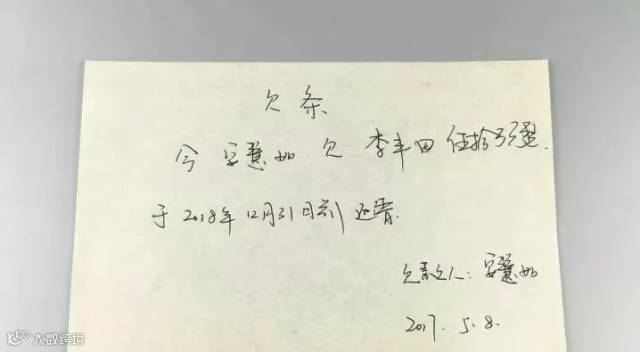 欠条
今 安慧如 欠 李丰田 伍拾万整.
于2018年12月31日前还清.
欠款人: 安慧如
2017. 5. 8.
大数跨境